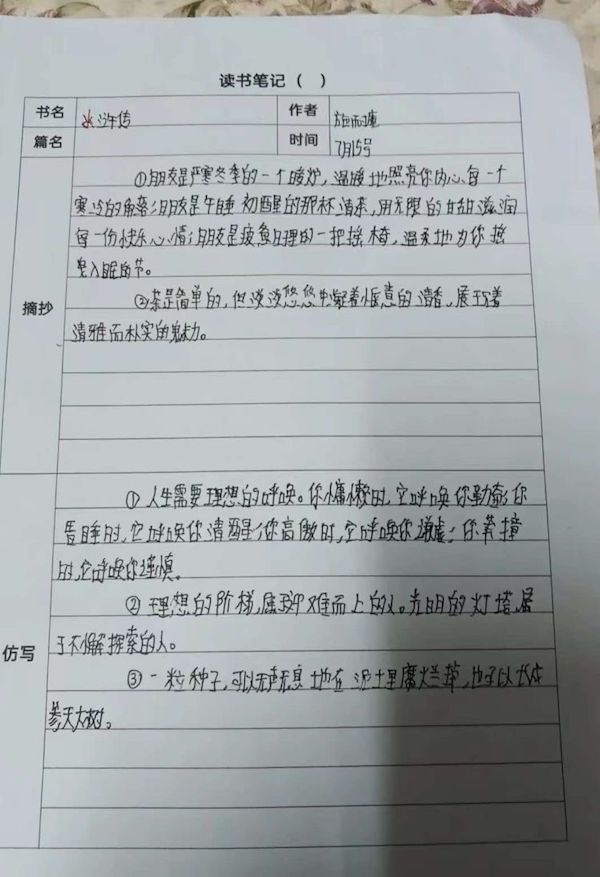 读书笔记（ ）
书名 水浒传 作者 施耐庵
篇名 时间 7月15号
摘抄
①朋友是严寒冬季的一个暖炉，温暖地照亮你内心每一个
寒冷的角落；朋友是午睡初醒的那杯清茶，用无限的甘甜滋润
每一份快乐心情；朋友是疲惫日理的一把摇椅，温柔地为你摇
晃入眠的节。
②茶是简单的，但淡淡悠悠中凝着惬意的清香，展于
清雅而朴实的魅力。
仿写
①人生需要理想的呼唤。你慵懒时，它呼唤你勤奋；你
昏睡时，它呼唤你清醒；你高傲时，它呼唤你谦虚；你莽撞
时，它呼唤你谨慎。
②理想的阶梯，属于迎难而上的人。光明的灯塔，属
于不懈探索的人。
③一粒种子，可以无声无息地在泥土里腐烂掉，也可以长成
参天大树。